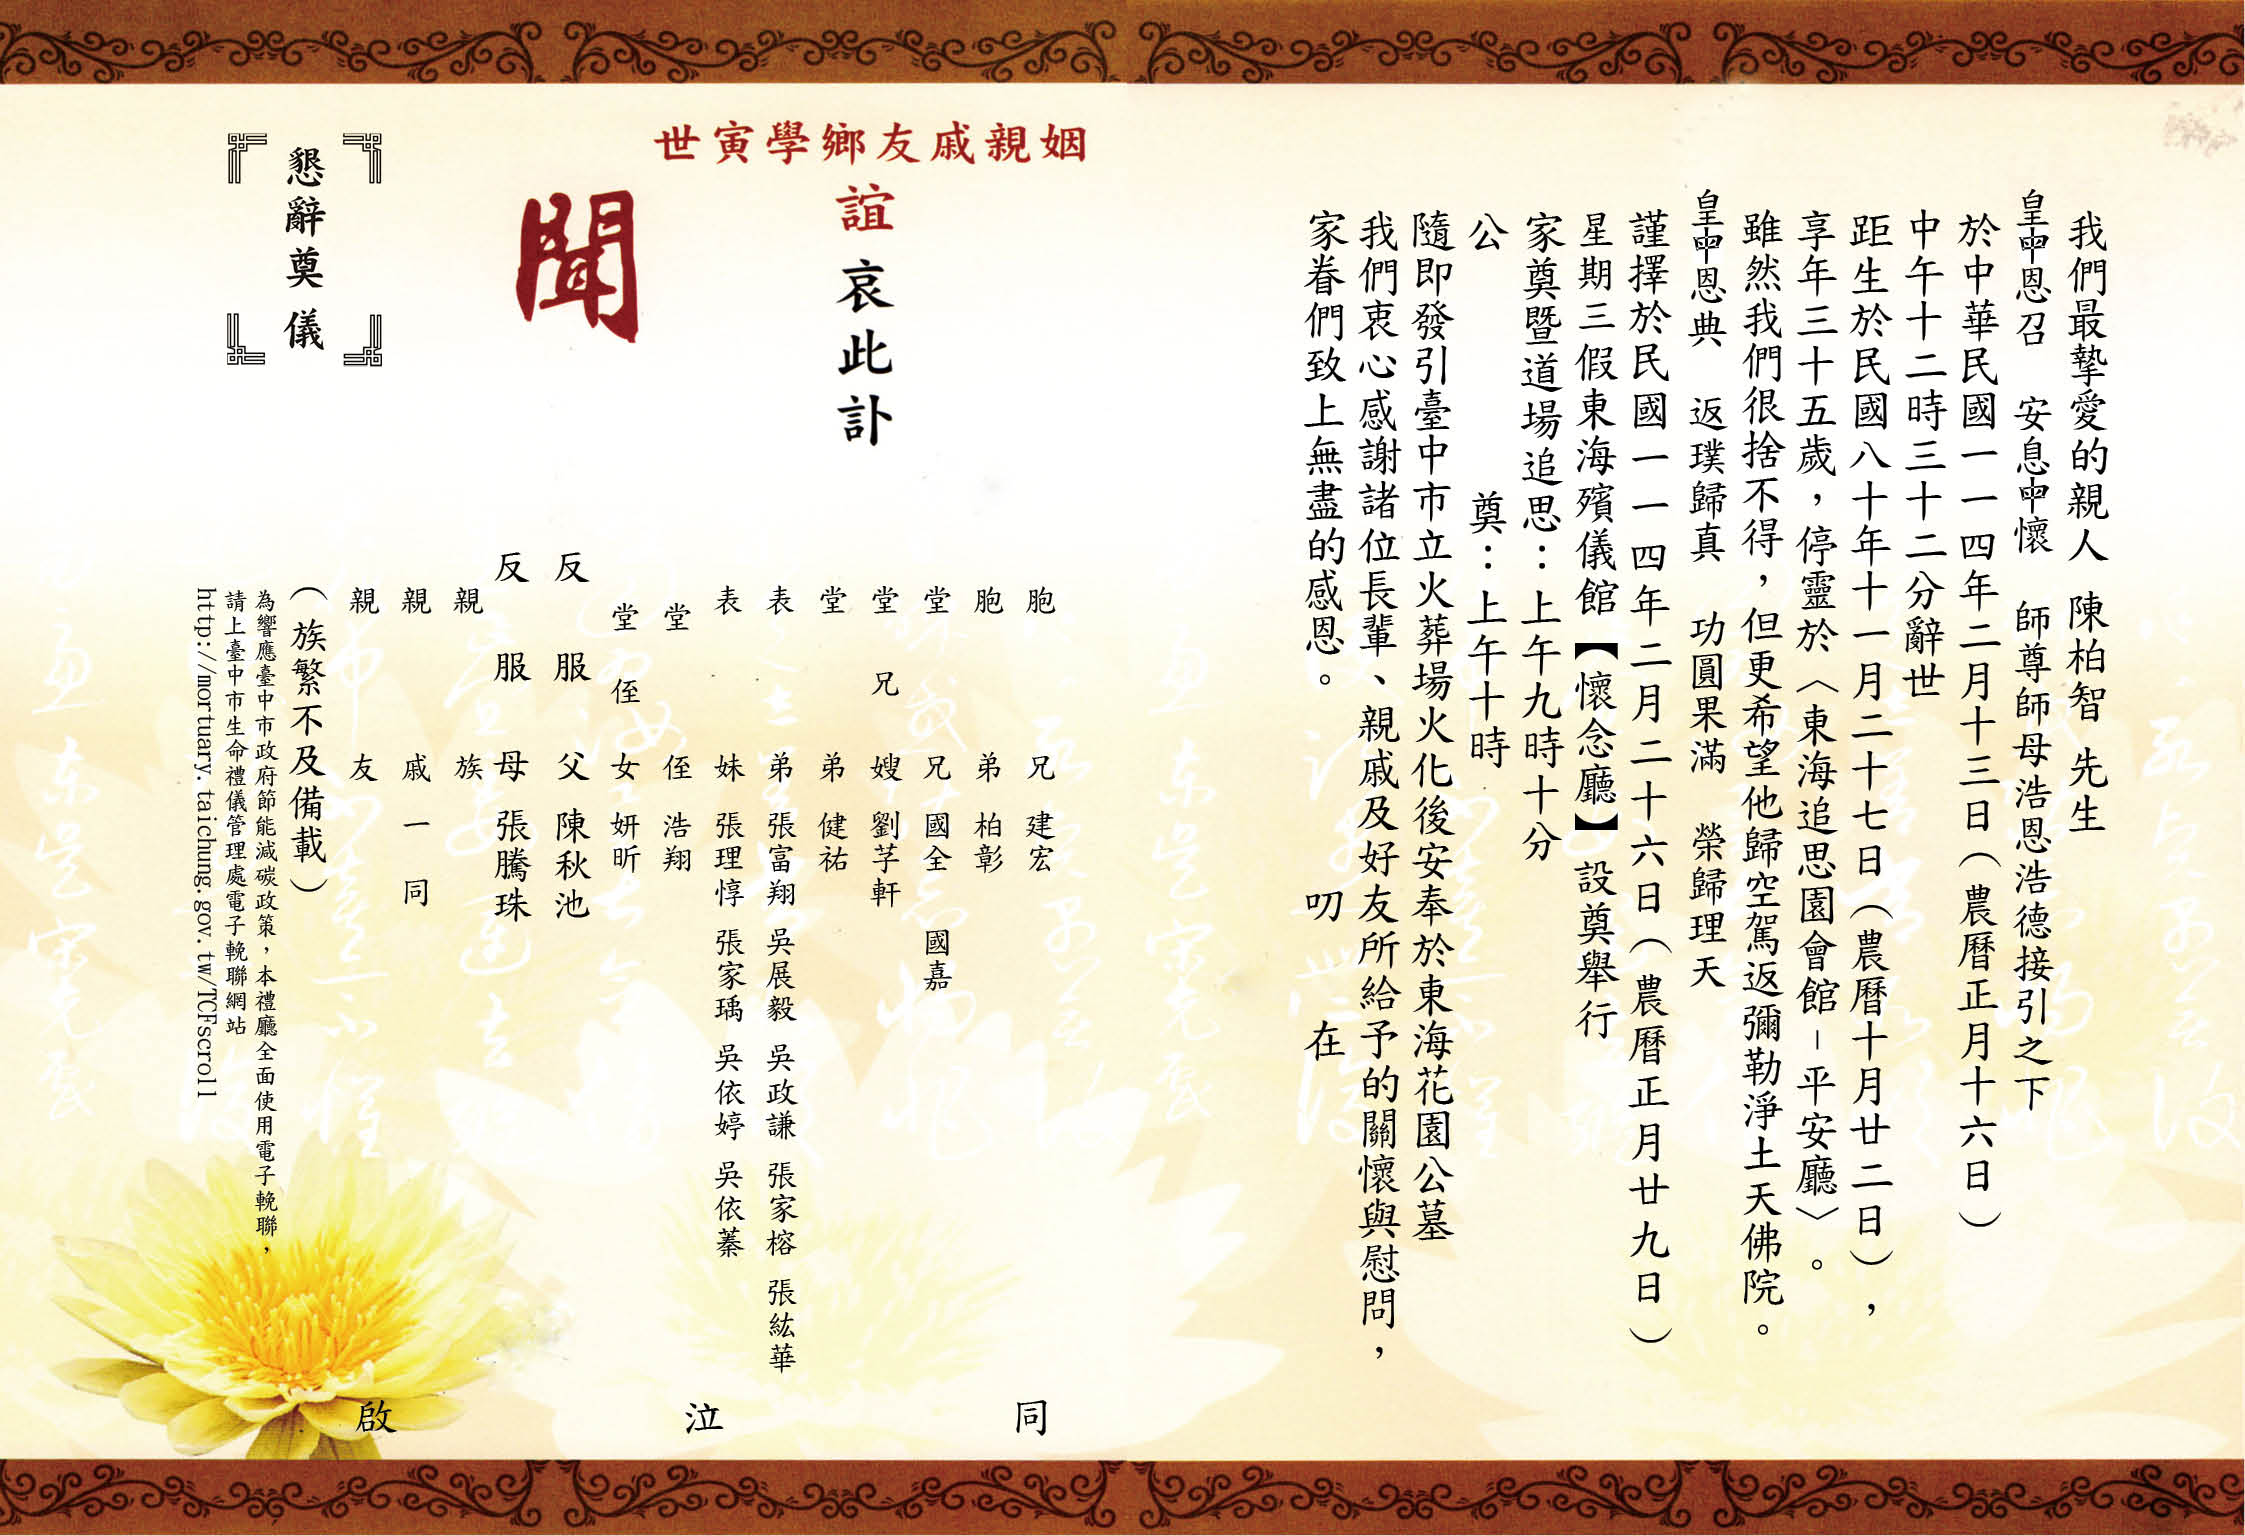 我們最摯愛的親人 陳柏智 先生
皇𤰞恩召 安息𤰞懷 師尊師母浩恩浩德接引之下
於中華民國一一四年二月十三日(農曆正月十六日)
中午十二時三十二分辭世
距生於民國八十年十一月二十七日(農曆十月廿二日),
享年三十五歲,停靈於〈東海追思園會館-平安廳〉。
雖然我們很捨不得,但更希望他歸空駕返彌勒淨土天佛院。
皇𤰞恩典 返璞歸真 功圓果滿 榮歸理天
謹擇於民國一一四年二月二十六日(農曆正月廿九日)
星期三假東海殯儀館【(懷念廳)】設奠舉行
家奠暨道場追思:上午九時十分
公 奠:上午十時
隨即發引臺中市立火葬場火化後安奉於東海花園公墓
我們衷心感謝諸位長輩、親戚及好友所給予的關懷與慰問,
家眷們致上無盡的感恩。 叨 在
世寅學鄉友戚親姻
誼哀此訃
聞
胞兄 建宏
胞弟 柏彰
堂兄 國全 國嘉
堂兄嫂 劉芓軒
堂弟 健祐
表弟 張富翔 吳展毅 吳政謙 張家榕 張紘華
表妹 張理惇 張家瑀 吳依婷 吳依蓁
堂侄 浩翔
堂侄女 妍昕
反服父 陳秋池
反服母 張騰珠
親族
親戚一同
親友
同 泣 啟
(族繁不及備載)
為響應臺中市政府節能減碳政策,本禮廳全面使用電子輓聯,
請上臺中市生命禮儀管理處電子輓聯網站
http://mortuary.taichung.gov.tw/TCFscroll
懇辭奠儀